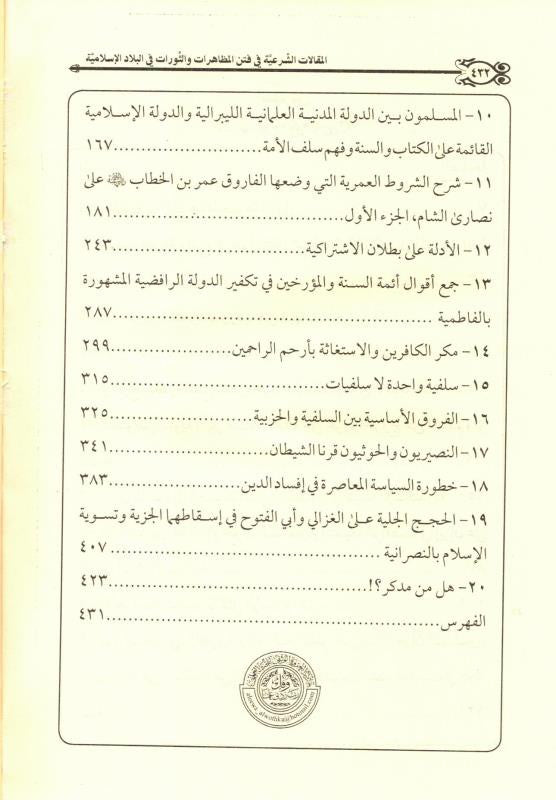 ٤٣٢
المقالات الشرعيّة في فتن المظاهرات والثورات في البلاد الإسلاميّة
١٠- المسلمون بين الدولة المدنية العلمانية الليبرالية والدولة الإسلامية
القائمة على الكتاب والسنة وفهم سلف الأمة..........................١٦٧
١١- شرح الشروط العمرية التي وضعها الفاروق عمر بن الخطاب ﵁ على
نصارى الشام، الجزء الأول........................................١٨١
١٢- الأدلة على بطلان الاشتراكية.................................٢٤٣
١٣- جمع أقوال أئمة السنة والمؤرخين في تكفير الدولة الرافضية المشهورة
بالفاطمية ......................................................٢٨٧
١٤- مكر الكافرين والاستغاثة بأرحم الراحمين.....................٢٩٩
١٥- سلفية واحدة لا سلفيات......................................٣١٥
١٦- الفروق الأساسية بين السلفية والحزبية........................٣٢٥
١٧- النصيريون والحوثيون قرنا الشيطان...........................٣٤١
١٨- خطورة السياسة المعاصرة في إفساد الدين.....................٣٨٣
١٩- الحجج الجلية على الغزالي وأبي الفتوح في إسقاطهما الجزية وتسوية
الإسلام بالنصرانية ..............................................٤٠٧
٢٠- هل من مدكر؟!.............................................٤٢٣
الفهرس.........................................................٤٣١